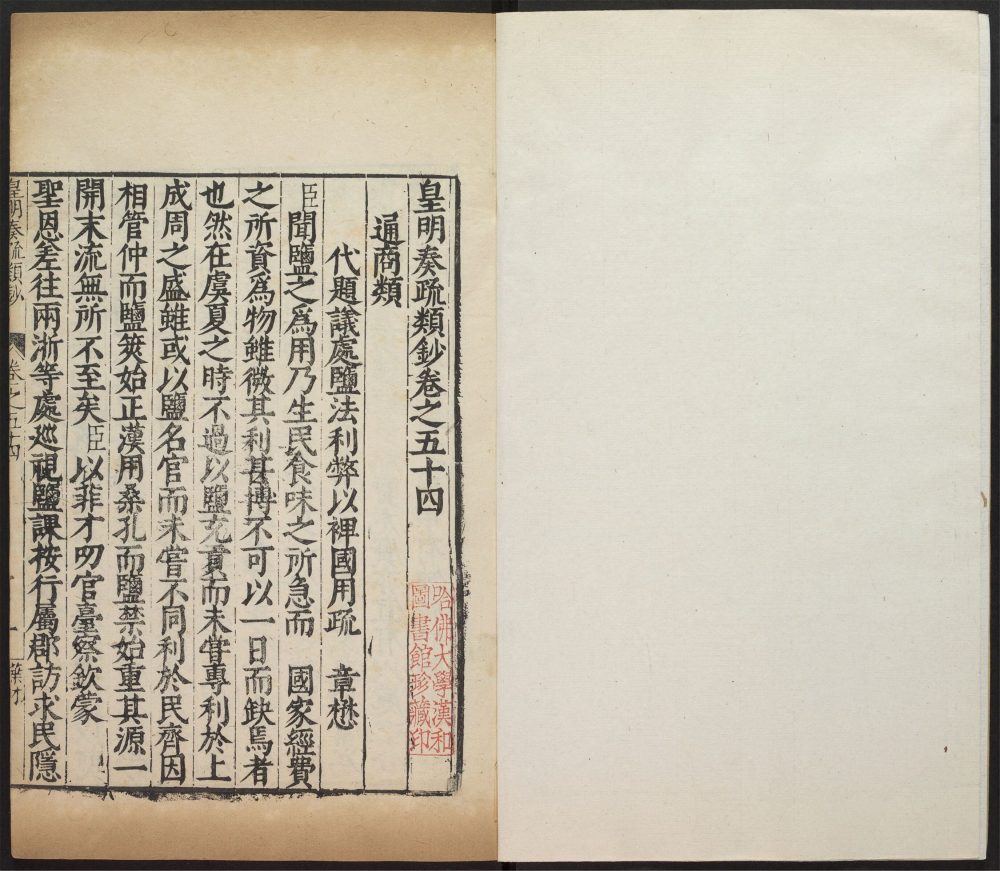 皇明奏疏類鈔卷之五十四
通商類
代題議處鹽法利弊以裨國用疏　章懋
臣聞鹽之為用乃生民食味之所急而　國家經費
之所資為物雖微其利甚博不可以一日而缺焉者
也然在虞夏之時不過以鹽充貢而未嘗專利於上
成周之盛雖或以鹽名官而未嘗不同利於民齊因
相管仲而鹽筴始正漢用桑孔而鹽禁始重其源一
開末流無所不至矣臣以菲才叨官臺察欽蒙
聖恩差往兩浙等處巡視鹽課按行屬郡訪求民隱
皇明奏疏類鈔　卷之五十四　一
哈佛大學漢和
圖書館珍藏印